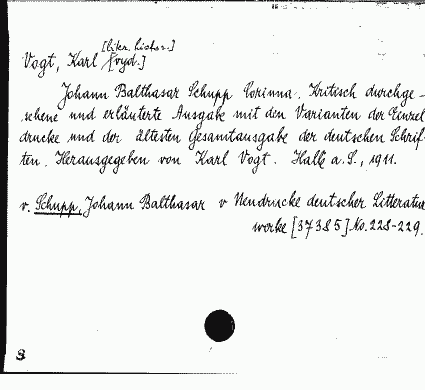 [liter. histor.]
Vogt, Karl
Johann Balthasar Schupp Corinna. Kritisch durchge-
sehene und erläuterte Ausgabe mit den Varianten der Einzel
drucke und der ältesten Gesamtausgabe der deutschen Schrif-
ten. Herausgegeben von Karl Vogt. Halle a. S., 1911.
v. Schupp, Johann Balthasar v Neudrucke deutscher Litteratur
werke [37385] No. 228-229.
8